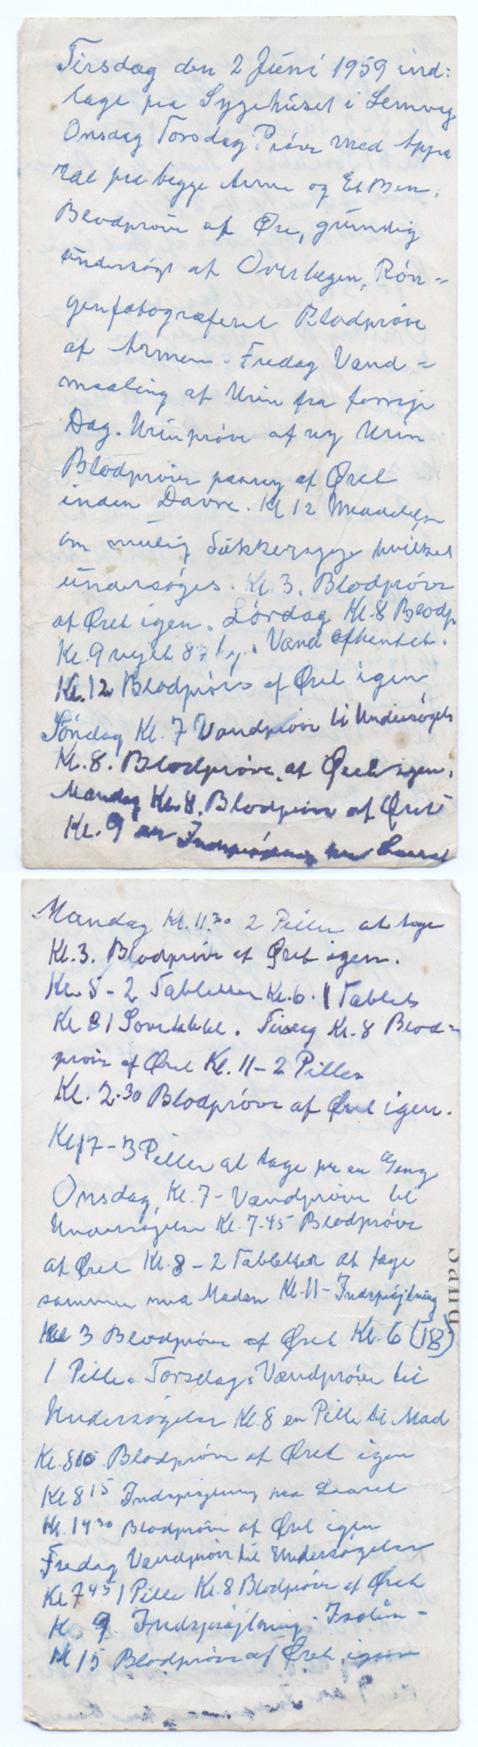 Tirsdag den 2 Juni 1959 ind:
lagt paa Sygehuset i Lemvig
Onsdag Torsdag Prøve med Appa
rat paa begge Arme og Et Ben.
Blodprøve af Øre, grundig
undersøgt af Overlægen, Røn=
genfotograferet Blodprøve
af Armen. Fredag Vand=
maaling af Urin fra forrige
Dag. Urinprøve af ny Urin
Blodprøve paany af Øret
inden Davre. Kl 12 Meddelelse
om mulig Sukkersyge hvilket
undersøges. Kl. 3. Blodprøve
af Øret igen. Lørdag Kl. 8 Blodp
Kl. 9 vejet Vand afhentet.
Kl. 12 Blodprøve af Øret igen
Søndag Kl. 7 Vandprøve til Undersøgels
Kl. 8. Blodprøve af Øret igen.
Mandag Kl. 8. Blodprøve af Øret
Kl. 9 en Indsprøjtning Laaret
Mandag Kl. 11.30 2 Piller at tage
Kl. 3. Blodprøve af Øret igen.
Kl. 5 - 2 Tabletter Kl. 6. 1 Tablet
Kl 8 1 Sovetablet. Tirsdag Kl. 8 Blod=
prøve af Øret Kl. 11 - 2 Piller
Kl. 2.30 Blodprøve af Øret igen.
Kl 17 - 3 Piller at tage paa en Gang
Onsdag Kl. 7 - Vandprøve til
Undersøgelse Kl. 7.45 Blodprøve
af Øret Kl. 8 - 2 Tabletter at tage
sammen med Maden Kl. 11 - Indsprøjtning
Kl 3 Blodprøve af Øret Kl. 6 (18)
1 Pille. Torsdag: Vandprøve til
Undersøgelse Kl. 8 en Pille til Mad
Kl. 8 10 Blodprøve af Øret igen
Kl 8 15 Indsprøjtning ved Laaret
Kl. 14 30 Blodprøve af Øret igen
Fredag Vandprøve til Undersøgelse
Kl 7 45 1 Pille Kl. 8 Blodprøve af Øret
Kl. 9 Indsprøjtning - Insulin -
Kl 15 Blodprøve af Øret igen